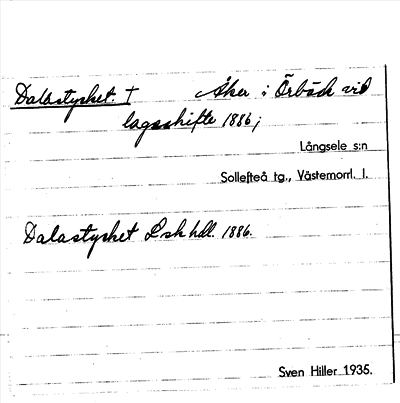 Dalastycket. † Åker i Örbäck vid
lagaskifte 1886;
Långsele s:n
Sollefteå tg., Västernorrl. l.
Dalastycket Lsk hdl. 1886.
Sven Hiller 1935.